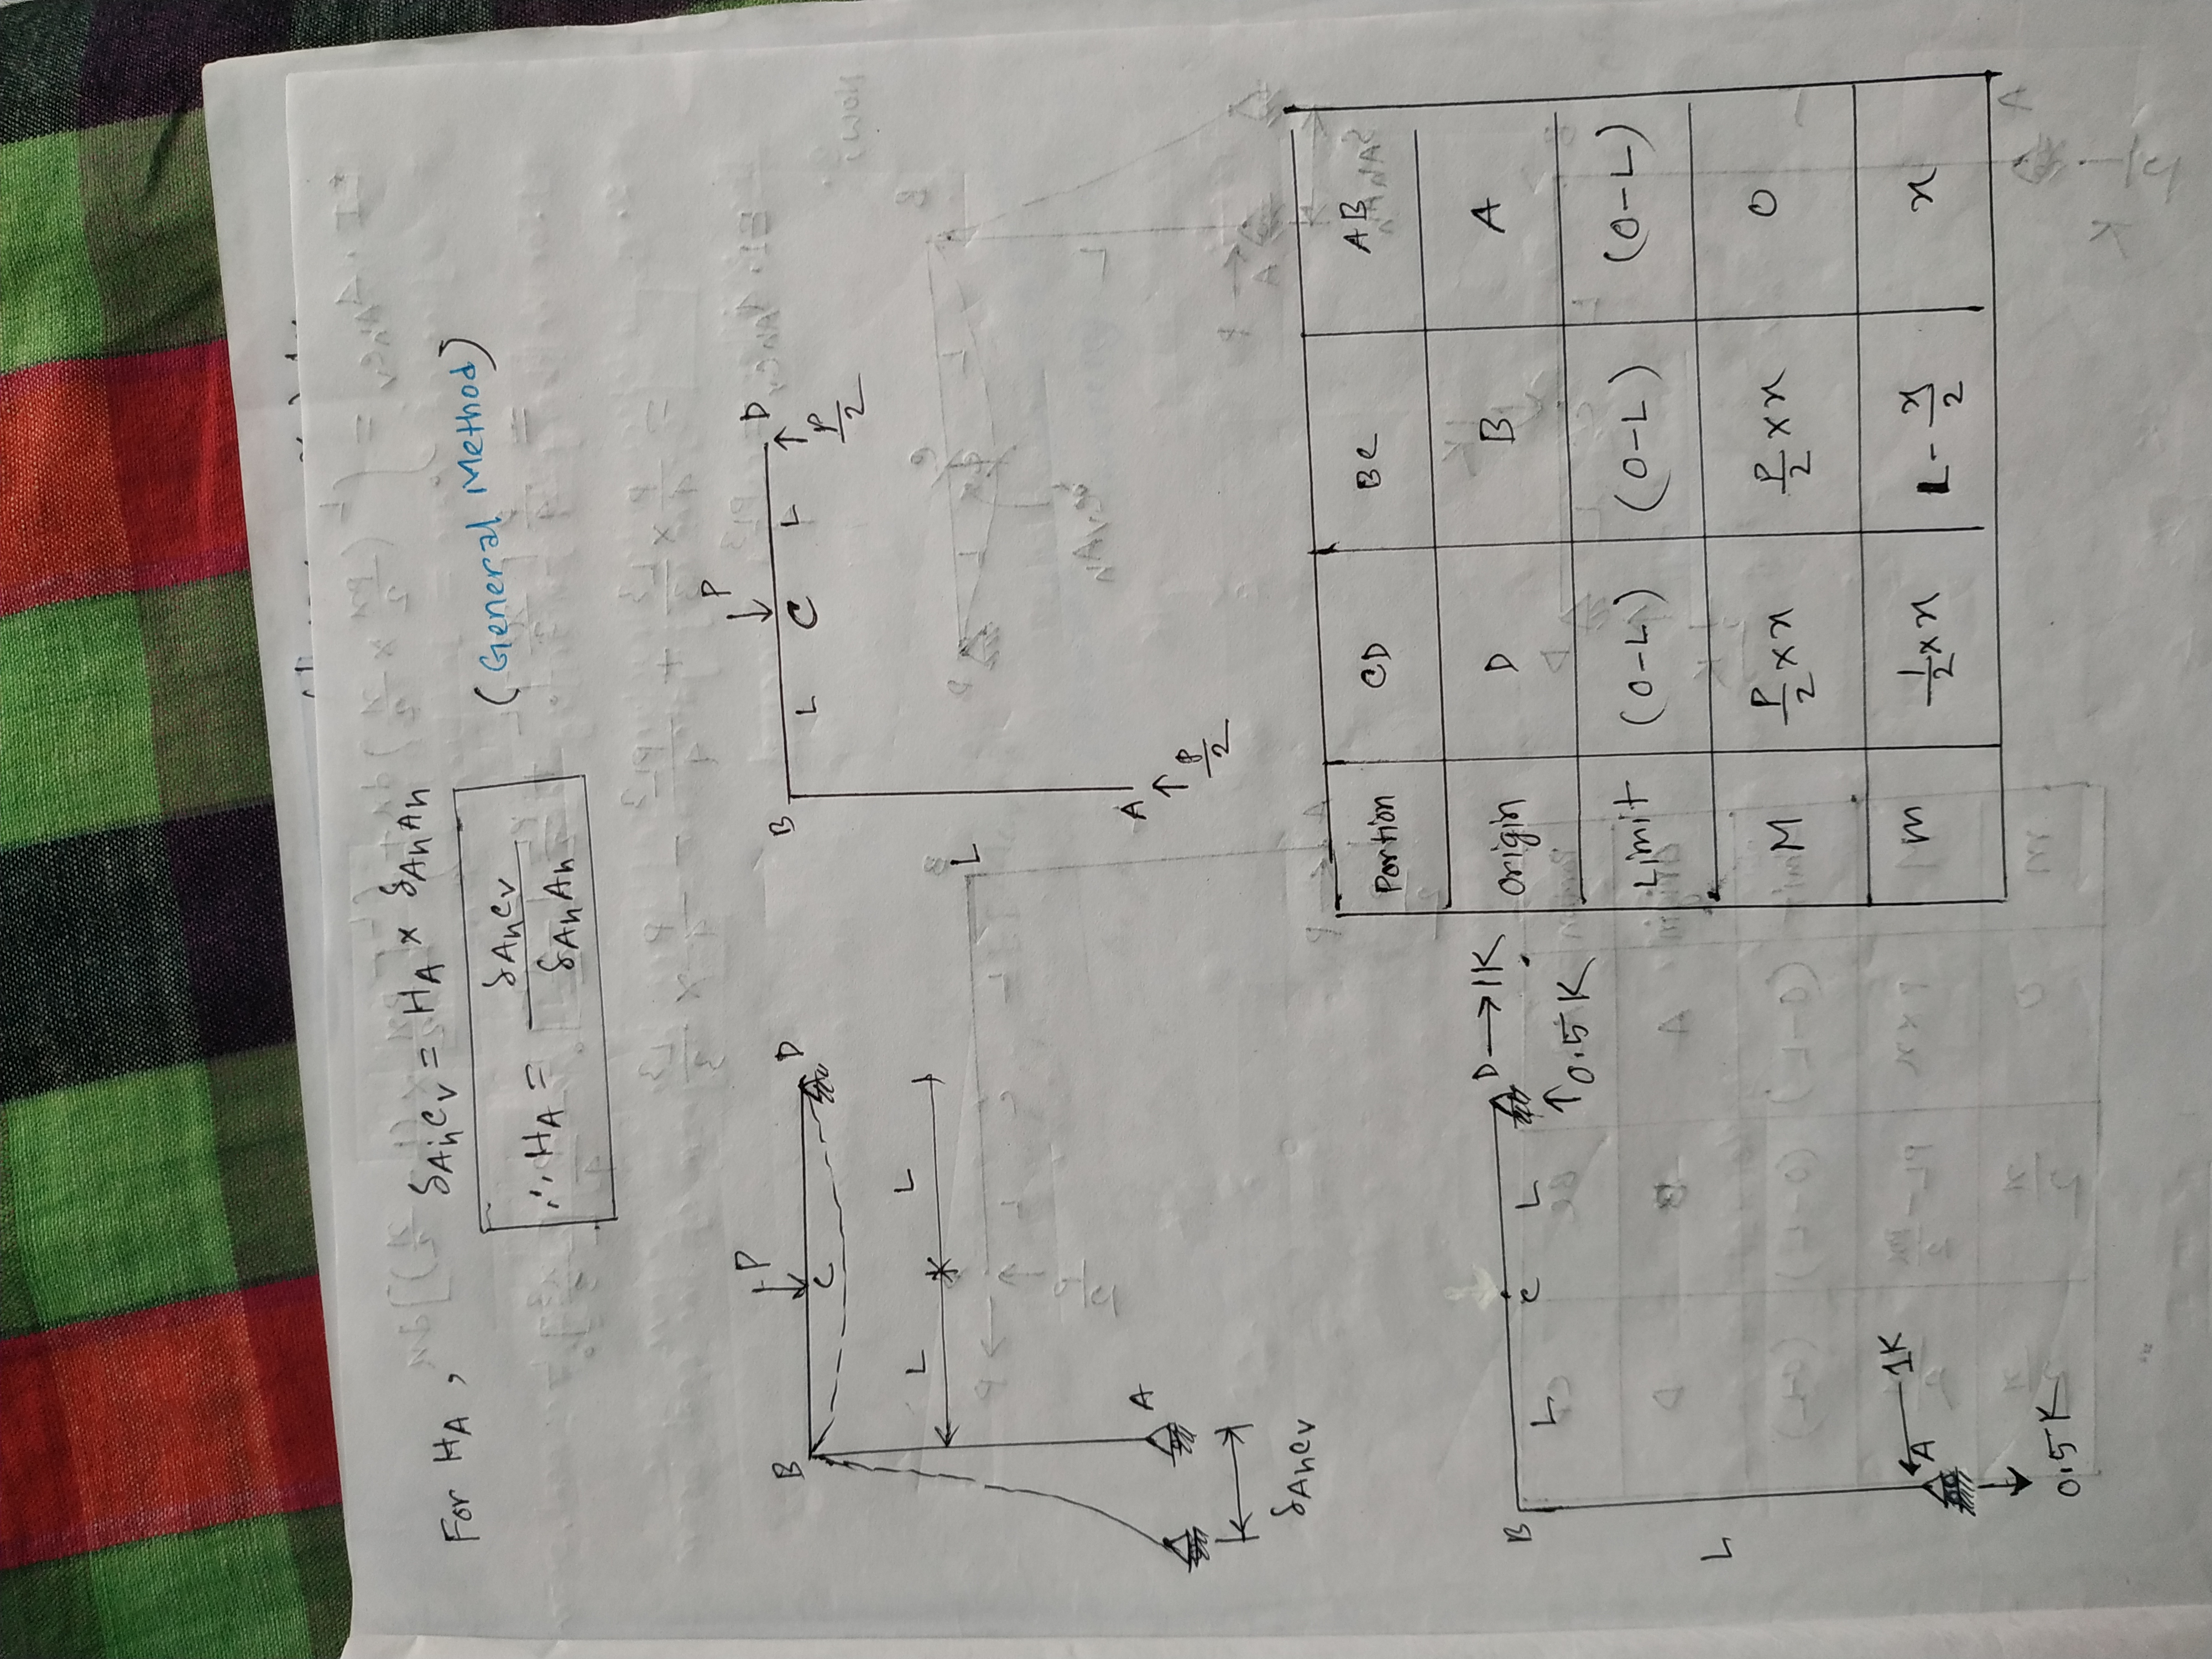 For H_A, δ_AhCv = H_A × δ_AhAh
∴ H_A = δ_AhCv / δ_AhAh (General Method)
P
B C D
L L
A
δ_AhCv
P
B L C L D
P/2
A
P/2
B L C L D → 1K
0.5K
L
A 1K
0.5K
Portion CD BC AB
Origin D B A
Limit (0-L) (0-L) (0-L)
M P/2 × x P/2 × x 0
m 1/2 × x L - x/2 x